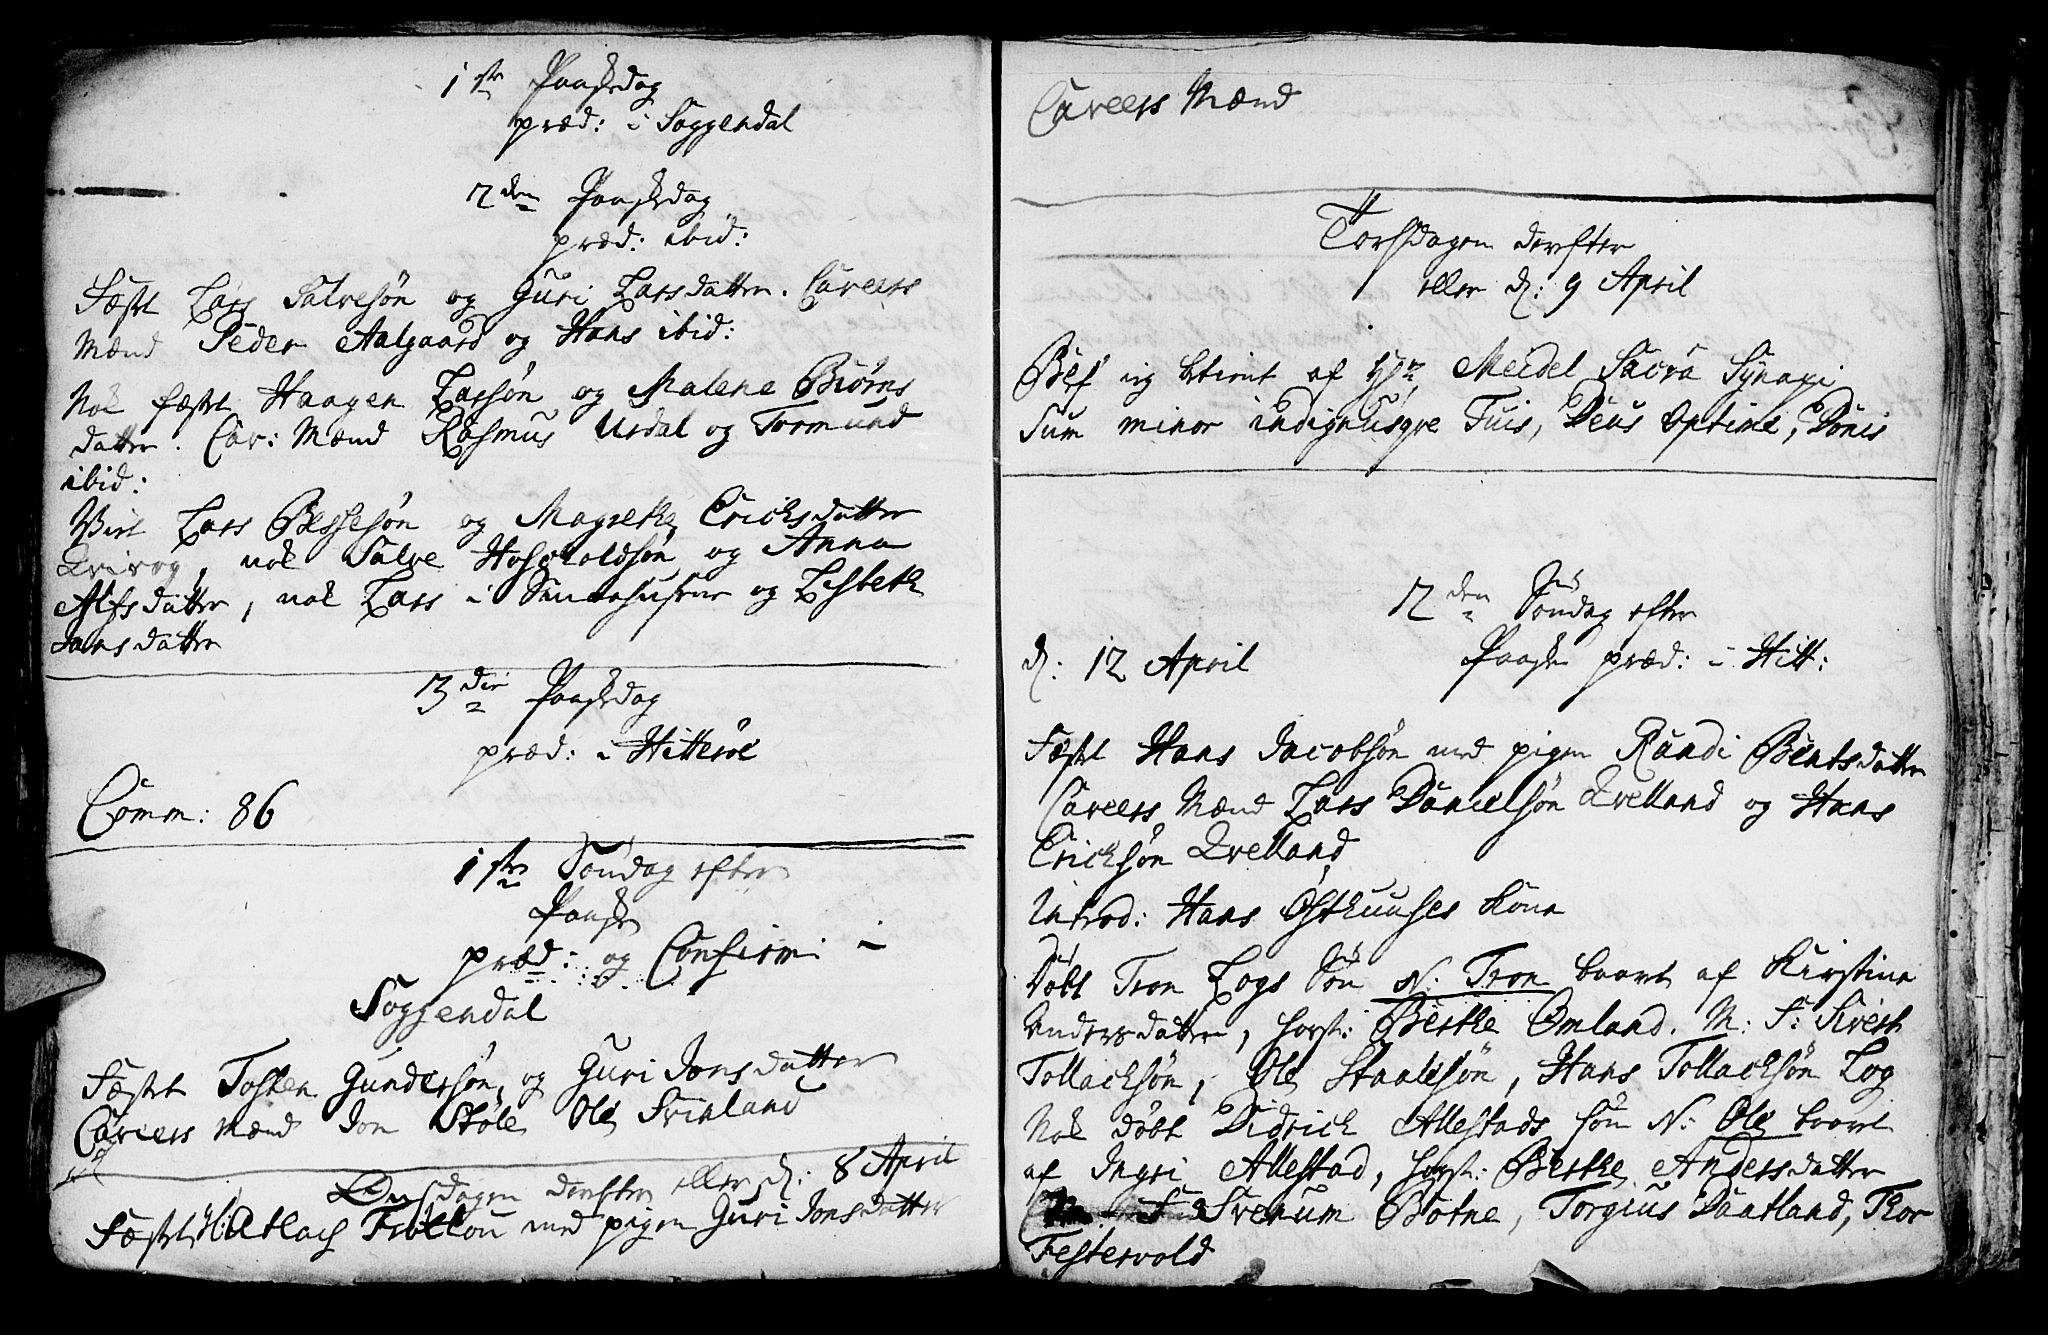 1ste Paaskedag
præd: i Soggendal
2den Paaskedag
præd: ibid:
Fæstet Lars Salvesøn og Guri Larsdatter. Caveers
Mænd Peder Aalgaard og Hans ibid:
Nok fæstet Haagen Larsøn og Malene Biørns
datter. Cav: Mænd Rasmus Urdal og Tormund
ibid:
Viet Lars Bessesøn og Magrethe Ericksdatter
Qvivog, nok Salve Hoskoldsøn og Anna
Alfsdatter, nok Lars i og Lisbeth
Jansdatter
3die Paaskedag
præd: i Hitterøe
Comm: 86
1ste Søndag efter
Paaske
præd: og Confirm: i
Soggendal
Fæstet Tosten Gundersøn, og Guri Jonsdatter
Caveers Mænd Jon Støle Ole Svinland
Onsdagen derefter eller d: 8 April
Fæstet Hr: Atlach med pigen Guri Jonsdatter
Caveers Mænd
Torsdagen derefter
eller d: 9 April
Blef ieg betient af Hr: Meidel Sacra Synaxi
Sum minor indignusqve Tuis, Deus optime, Donis
2den Søndag efter
d: 12 April Paaske præd: i Hitt:
Fæstet Hans Jacobsøn med pigen Randi Bentsdatter
Caveers Mænd Lars Danielsøn Qvelland og Hans
Ericksøn Qvelland
Introd: Hans Østhuuses Kone
Døbt Tron Logs Søn N: Tron baaret af Kirstine
Andersdatter, host: Berthe Omland. M: F: Sivert
Tollacksøn, Ole Staalesøn, Hans Tollacksøn Log
Nok døbt Didrick Allestads søn N: Ole baaret
af Ingri Allestad, host: Berthe Andersdatter
F: Svenum Botne, Torgius Dautland, Thor
Festervold